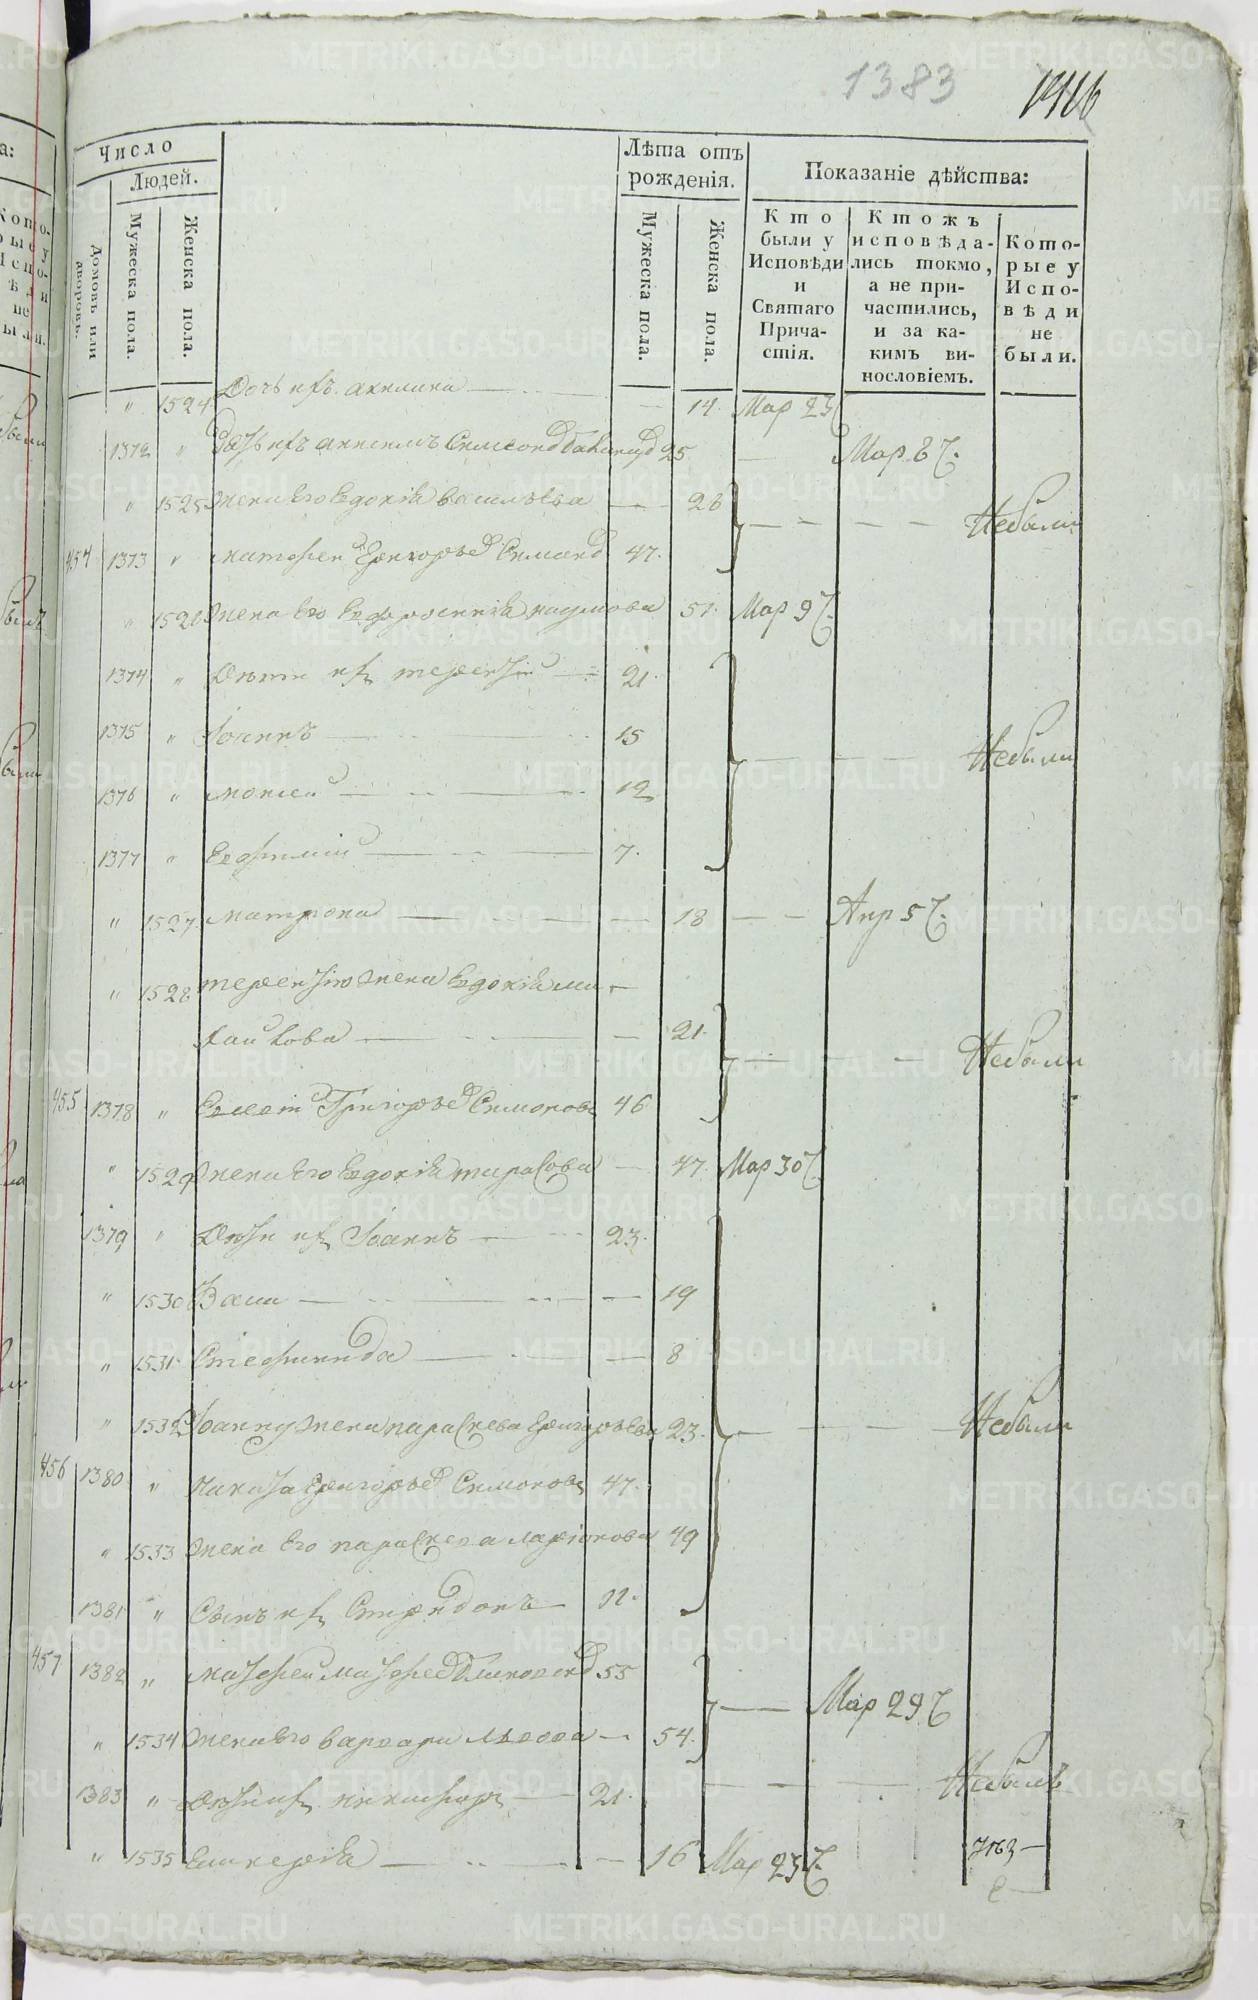 1383
1416
Число
Людей.
Домовъ или дворовъ.
Мужеска пола.
Женска пола.
Лѣта отъ рожденія.
Мужеска пола.
Женска пола.
Показаніе дѣйства:
Кто были у Исповѣди и Святаго Причастія.
Ктожъ исповѣдались токмо, а не причастились, и за какимъ винословіемъ.
Которые у Исповѣди не были.
" 1524 Дочь ихъ акилина — 14 Мар 23
1372 " Зять ихъ 25 — Мар 8
" 1525 жена Его Евдокія василіева — 28
Небыли
454 1373 " Григорьев 47.
" 1526 Жена Его Евфросиніа наумова 51. Мар 9
1374 " Дѣти ихъ терентій — 21.
1375 " Іоаннъ — 15
Небыли
1376 " моисей — 12
1377 " Евфимій — 7.
" 1527 матрона — 18 — Апр 5
" 1528 терентію жена Евдокіа ми-
хайлова — 21.
Небыли
455 1378 " Григорьев Симонов 46
" 1529 жена Его Евдокіа тарасова — 47. Мар 30
1379 " Дѣти ихъ Іоаннъ — 23.
" 1530 — 19
" 1531 Стефанида — 8
" 1532 Іоанну жена параскева Григорьева 23.
Небыли
456 1380 " Никита Григорьев Симонов 47.
" 1533 жена Его параскева ларіонова 49
1381 " Сынъ их Спиридонъ 11.
457 1382 " матфей матфеев 55
— Мар 29
" 1534 жена Его варвара львова — 54.
1383 " Дѣти их никифоръ — 21.
Небылъ
" 1535 Гликеріа — 16 Мар 23
7163 —